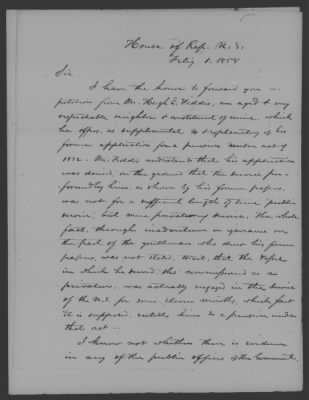 House of Rep. U. S.
Feb'y 1. 1858
Sir
I have the honor to forward you a
petition from Mr. Hugh E. Fiddis, an aged & very
respectable neighbor & constituent of mine, which
he offers, as supplemental to & explanatory of his
former application for a pension under act of
1832. Mr. Fiddis understands that his application
was denied on the ground that the service per-
formed by him, as shown by his former papers,
was not for a sufficient length of time public
service, but mere privateering service. The whole
fact, through inadvertence or ignorance on
the part of the gentleman who drew his former
papers, was not stated, to wit, that the vessel
in which he served, tho' commissioned as a
privateer, was actually engaged in the service
of the U.S. for some eleven months, which fact
it is supposed, entitles him to a pension under
that act.
I know not whether there is evidence
in any of the public offices of the Government,